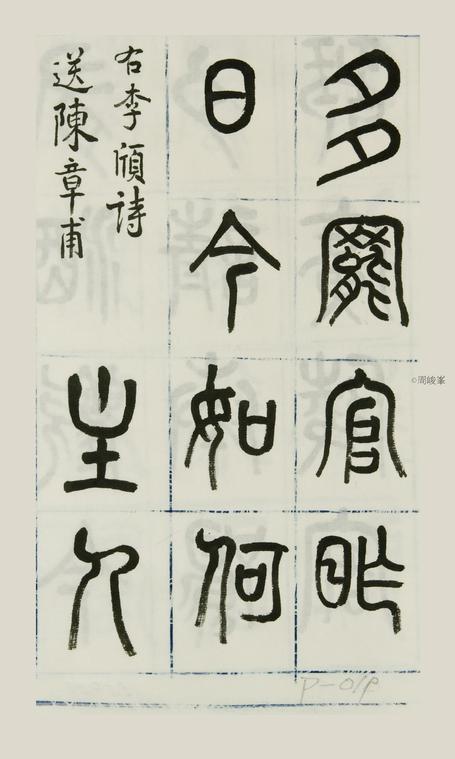 多罷官昨
日今如何
右李頎詩
送陳章甫
主人
©周峻峯
P-019